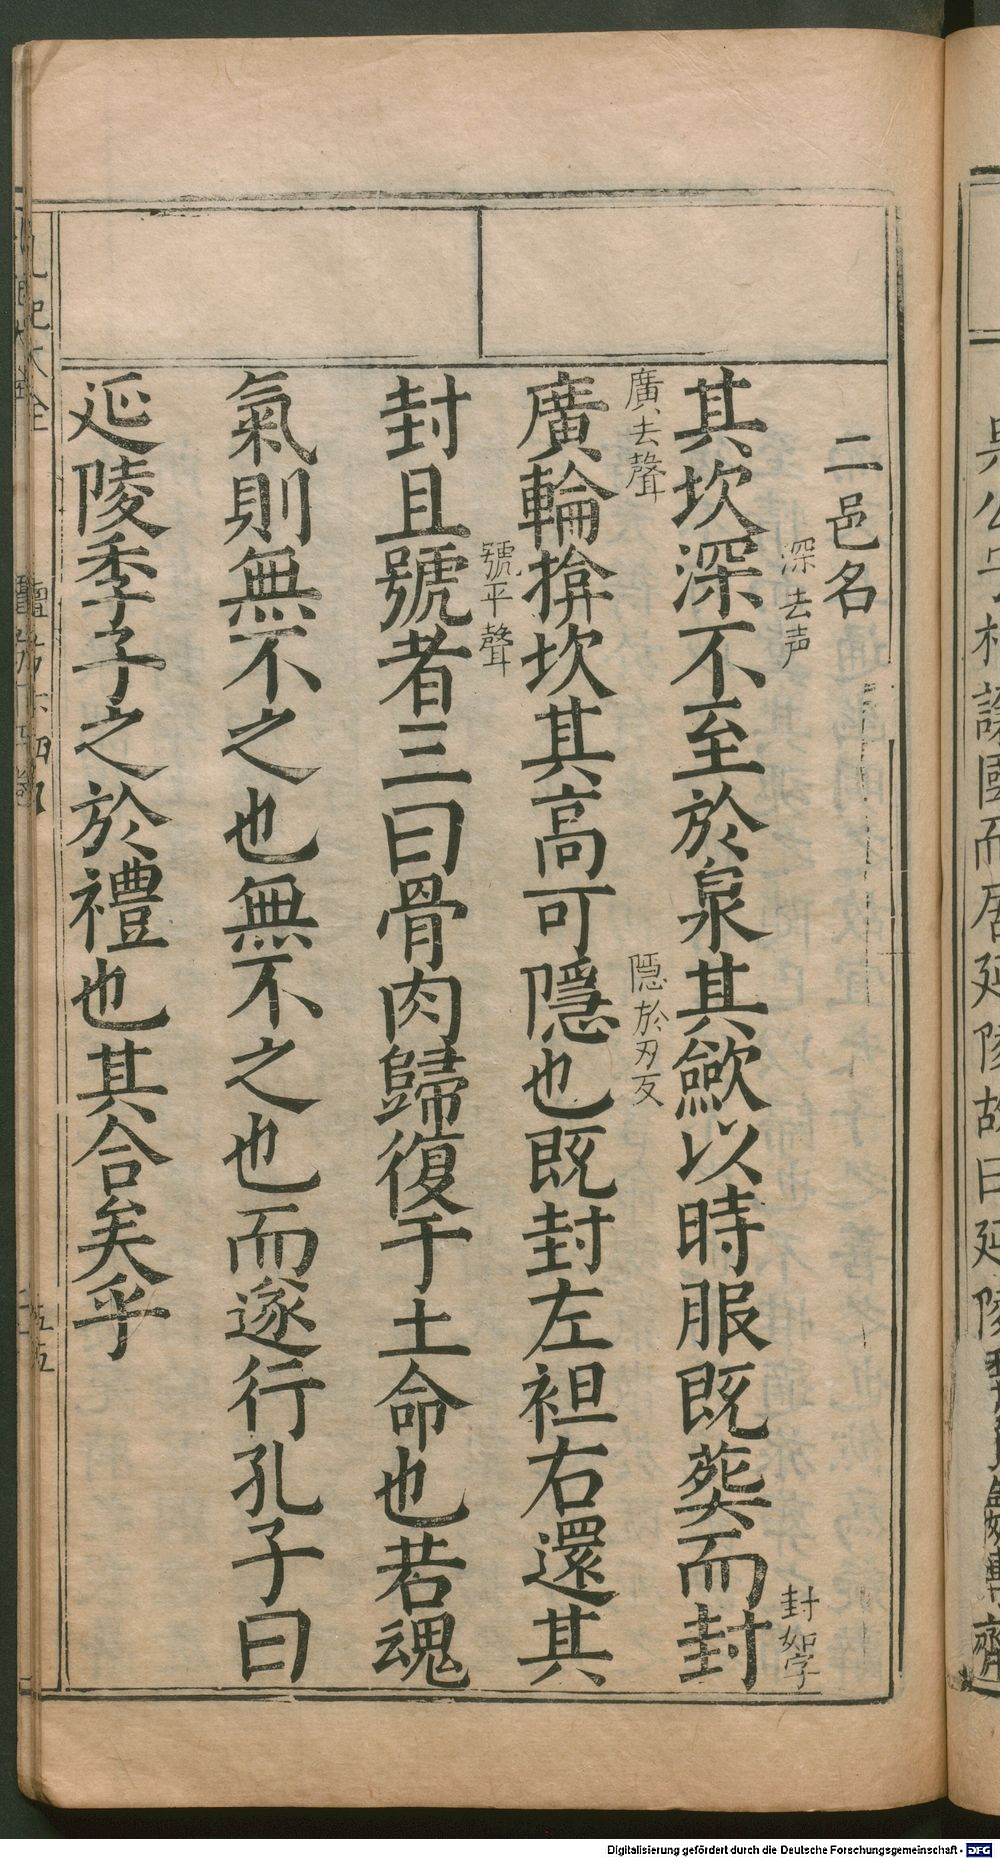 二邑名
深去声
封如字
其坎深不至於泉其斂以時服既葬而封
廣去聲
隱於刃反
廣輪揜坎其高可隱也既封左袒右還其
號平聲
封且號者三曰骨肉歸復于土命也若魂
氣則無不之也無不之也而遂行孔子曰
延陵季子之於禮也其合矣乎
Digitalisierung gefördert durch die Deutsche Forschungsgemeinschaft - DFG